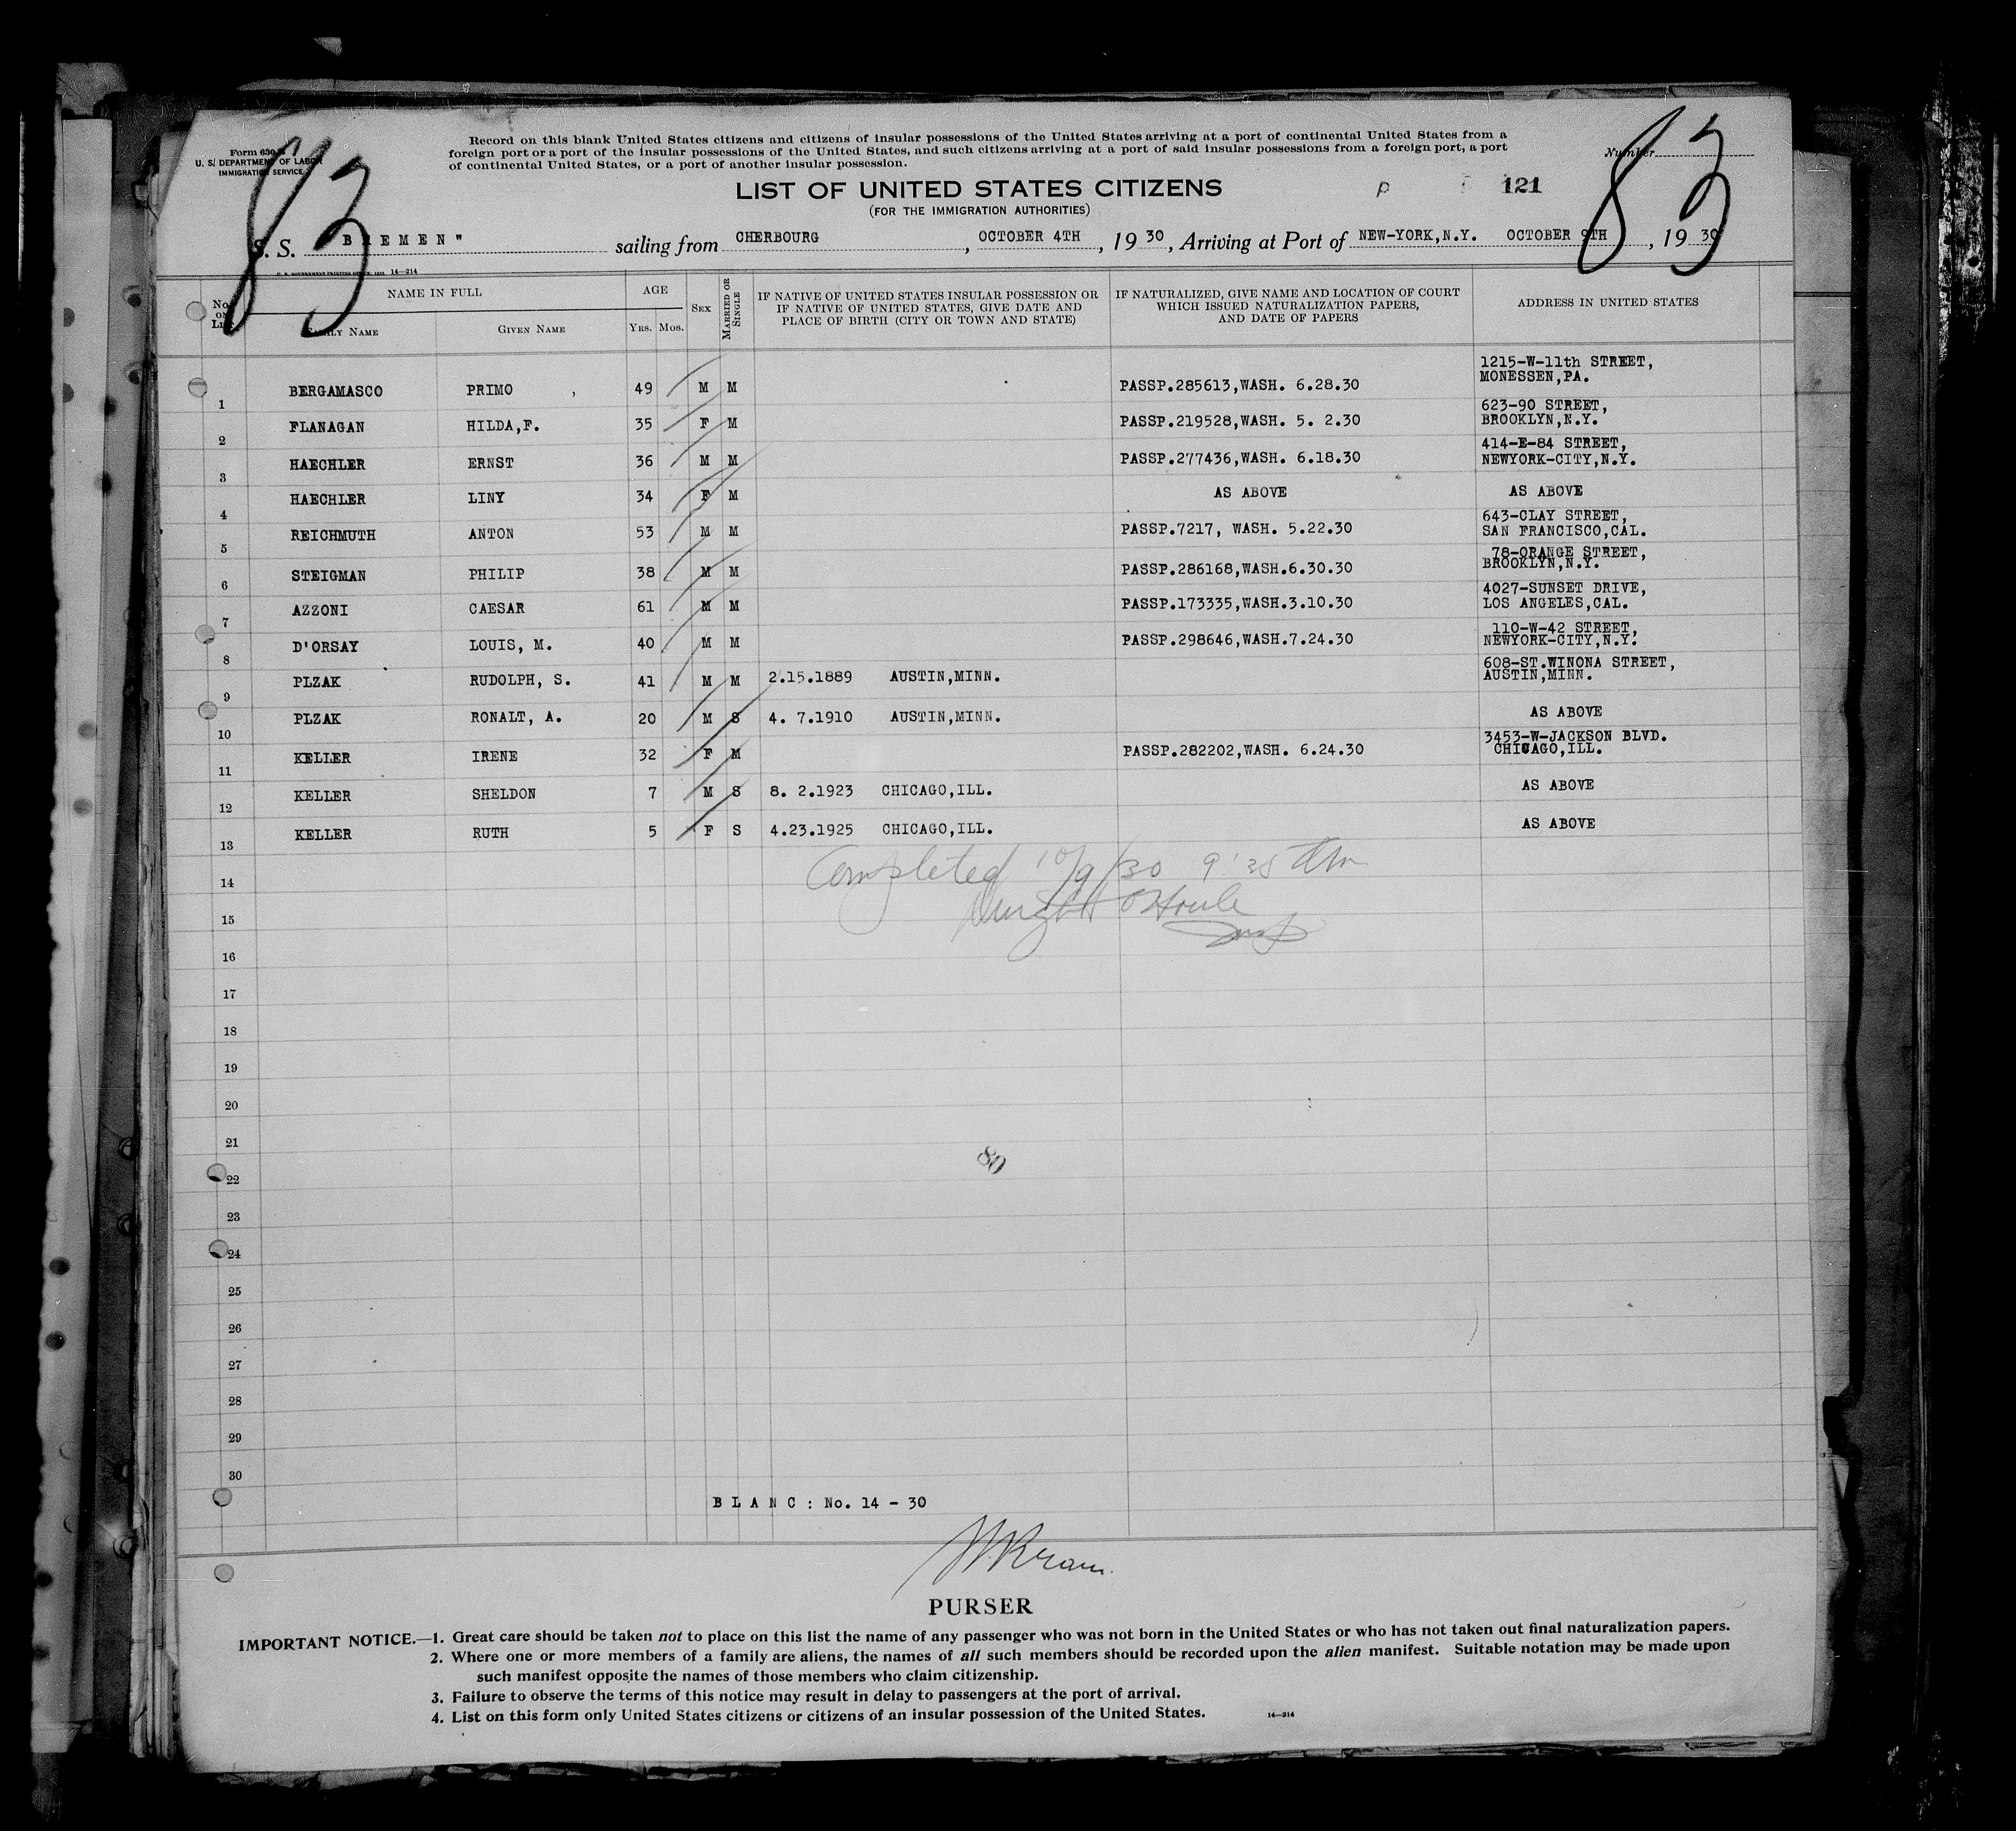 Form 630
U. S. DEPARTMENT OF LABOR
IMMIGRATION SERVICE
83
83
Record on this blank United States citizens and citizens of insular possessions of the United States arriving at a port of continental United States from a
foreign port or a port of the insular possessions of the United States, and such citizens arriving at a port of said insular possessions from a foreign port, a port
of continental United States, or a port of another insular possession.
Number
LIST OF UNITED STATES CITIZENS
(FOR THE IMMIGRATION AUTHORITIES)
P 121
S. S. BREMEN" sailing from CHERBOURG, OCTOBER 4TH, 1930, Arriving at Port of NEW-YORK,N.Y. OCTOBER 9TH, 1930
14—214
No. on List
NAME IN FULL
FAMILY NAME
GIVEN NAME
AGE
YRS. MOS.
SEX
MARRIED OR SINGLE
IF NATIVE OF UNITED STATES INSULAR POSSESSION OR
IF NATIVE OF UNITED STATES, GIVE DATE AND
PLACE OF BIRTH (CITY OR TOWN AND STATE)
IF NATURALIZED, GIVE NAME AND LOCATION OF COURT
WHICH ISSUED NATURALIZATION PAPERS,
AND DATE OF PAPERS
ADDRESS IN UNITED STATES
1 BERGAMASCO PRIMO 49 M M PASSP.285613,WASH. 6.28.30 1215-W-11th STREET,
MONESSEN,PA.
2 FLANAGAN HILDA,F. 35 F M PASSP.219528,WASH. 5. 2.30 623-90 STREET,
BROOKLYN,N.Y.
3 HAECHLER ERNST 36 M M PASSP.277436,WASH. 6.18.30 414-E-84 STREET,
NEWYORK-CITY,N.Y.
4 HAECHLER LINY 34 F M AS ABOVE AS ABOVE
5 REICHMUTH ANTON 53 M M PASSP.7217, WASH. 5.22.30 643-CLAY STREET,
SAN FRANCISCO,CAL.
6 STEIGMAN PHILIP 38 M M PASSP.286168,WASH.6.30.30 78-ORANGE STREET,
BROOKLYN,N.Y.
7 AZZONI CAESAR 61 M M PASSP.173335,WASH.3.10.30 4027-SUNSET DRIVE,
LOS ANGELES,CAL.
8 D'ORSAY LOUIS, M. 40 M M PASSP.298646,WASH.7.24.30 110-W-42 STREET,
NEWYORK-CITY,N.Y.
9 PLZAK RUDOLPH, S. 41 M M 2.15.1889 AUSTIN,MINN. 608-ST.WINONA STREET,
AUSTIN,MINN.
10 PLZAK RONALT, A. 20 M S 4. 7.1910 AUSTIN,MINN. AS ABOVE
11 KELLER IRENE 32 F M PASSP.282202,WASH. 6.24.30 3453-W-JACKSON BLVD.
CHICAGO,ILL.
12 KELLER SHELDON 7 M S 8. 2.1923 CHICAGO,ILL. AS ABOVE
13 KELLER RUTH 5 F S 4.23.1925 CHICAGO,ILL. AS ABOVE
Completed 10/9/30
Dwight
Insp
14
15
16
17
18
19
20
21
22
23
24
25
26
27
28
29
30
80
B L A N C : No. 14 - 30
PURSER
IMPORTANT NOTICE.—1. Great care should be taken not to place on this list the name of any passenger who was not born in the United States or who has not taken out final naturalization papers.
2. Where one or more members of a family are aliens, the names of all such members should be recorded upon the alien manifest. Suitable notation may be made upon
such manifest opposite the names of those members who claim citizenship.
3. Failure to observe the terms of this notice may result in delay to passengers at the port of arrival.
4. List on this form only United States citizens or citizens of an insular possession of the United States.
14—214